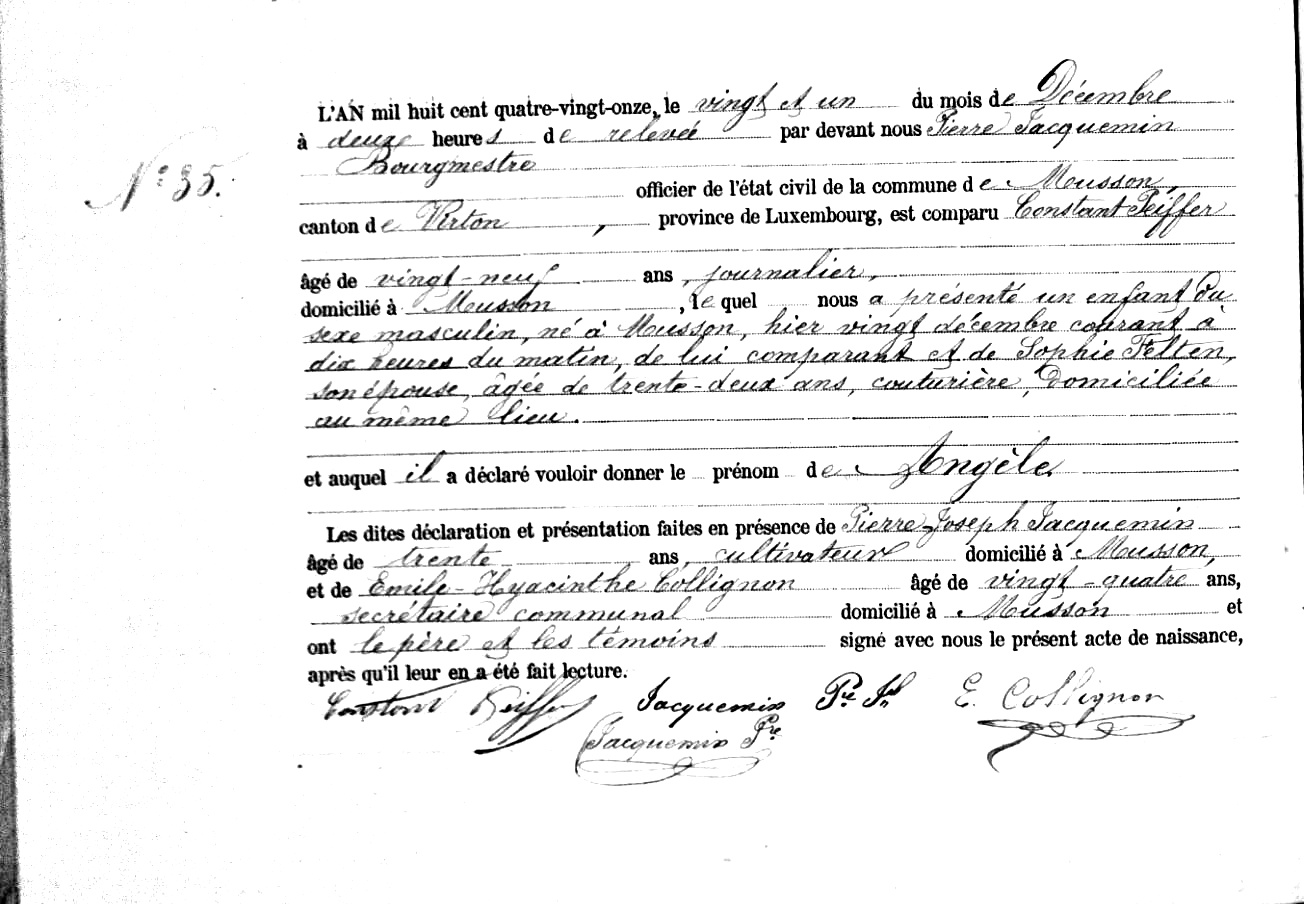 L'AN mil huit cent quatre-vingt-onze, le vingt et un du mois de Décembre
à deux heures de relevée par devant nous Pierre Jacquemin
Bourgmestre
N° 35.
officier de l'état civil de la commune de Musson,
canton de Virton, province de Luxembourg, est comparu Constant Peiffer
âgé de vingt-neuf ans, journalier,
domicilié à Musson, lequel nous a présenté un enfant du
sexe masculin, né à Musson, hier vingt décembre courant à
dix heures du matin, de lui comparant et de Sophie Felten,
son épouse, âgée de trente-deux ans, couturière, domiciliée
au même lieu.
et auquel il a déclaré vouloir donner le prénom de Angèle
Les dites déclaration et présentation faites en présence de Pierre Joseph Jacquemin
âgé de trente ans, cultivateur domicilié à Musson,
et de Emile-Hyacinthe Collignon âgé de vingt-quatre ans,
secrétaire communal domicilié à Musson et
ont le père et les témoins signé avec nous le présent acte de naissance,
après qu'il leur en a été fait lecture.
Constant Peiffer Jacquemin Pre Jh E. Collignon
Jacquemin Pre